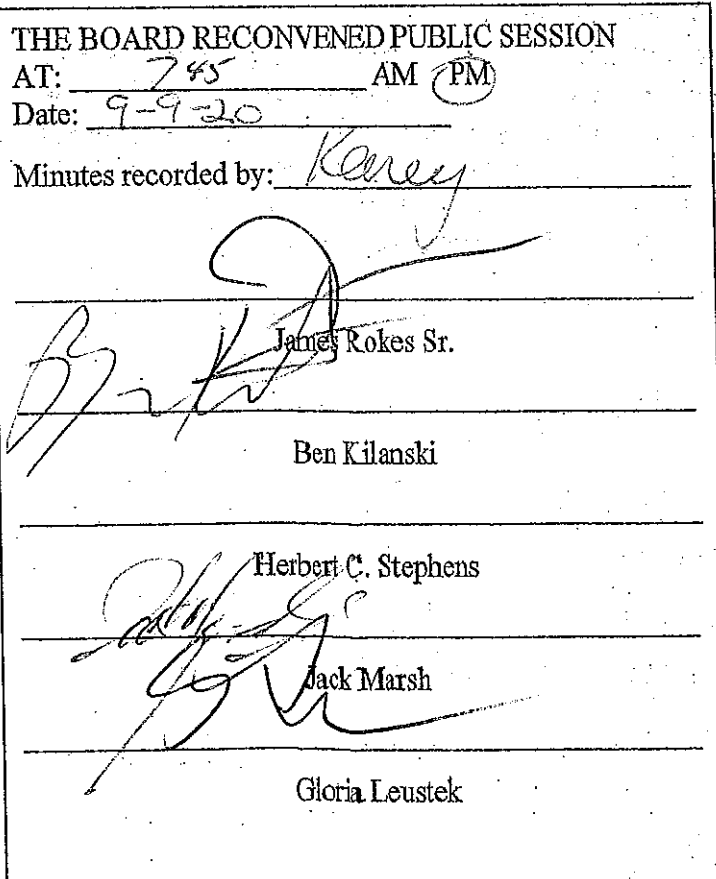 THE BOARD RECONVENED PUBLIC SESSION
AT: 745 AM PM
Date: 9-9-20
Minutes recorded by:
James Rokes Sr.
Ben Kilanski
Herbert C. Stephens
Jack Marsh
Gloria Leustek